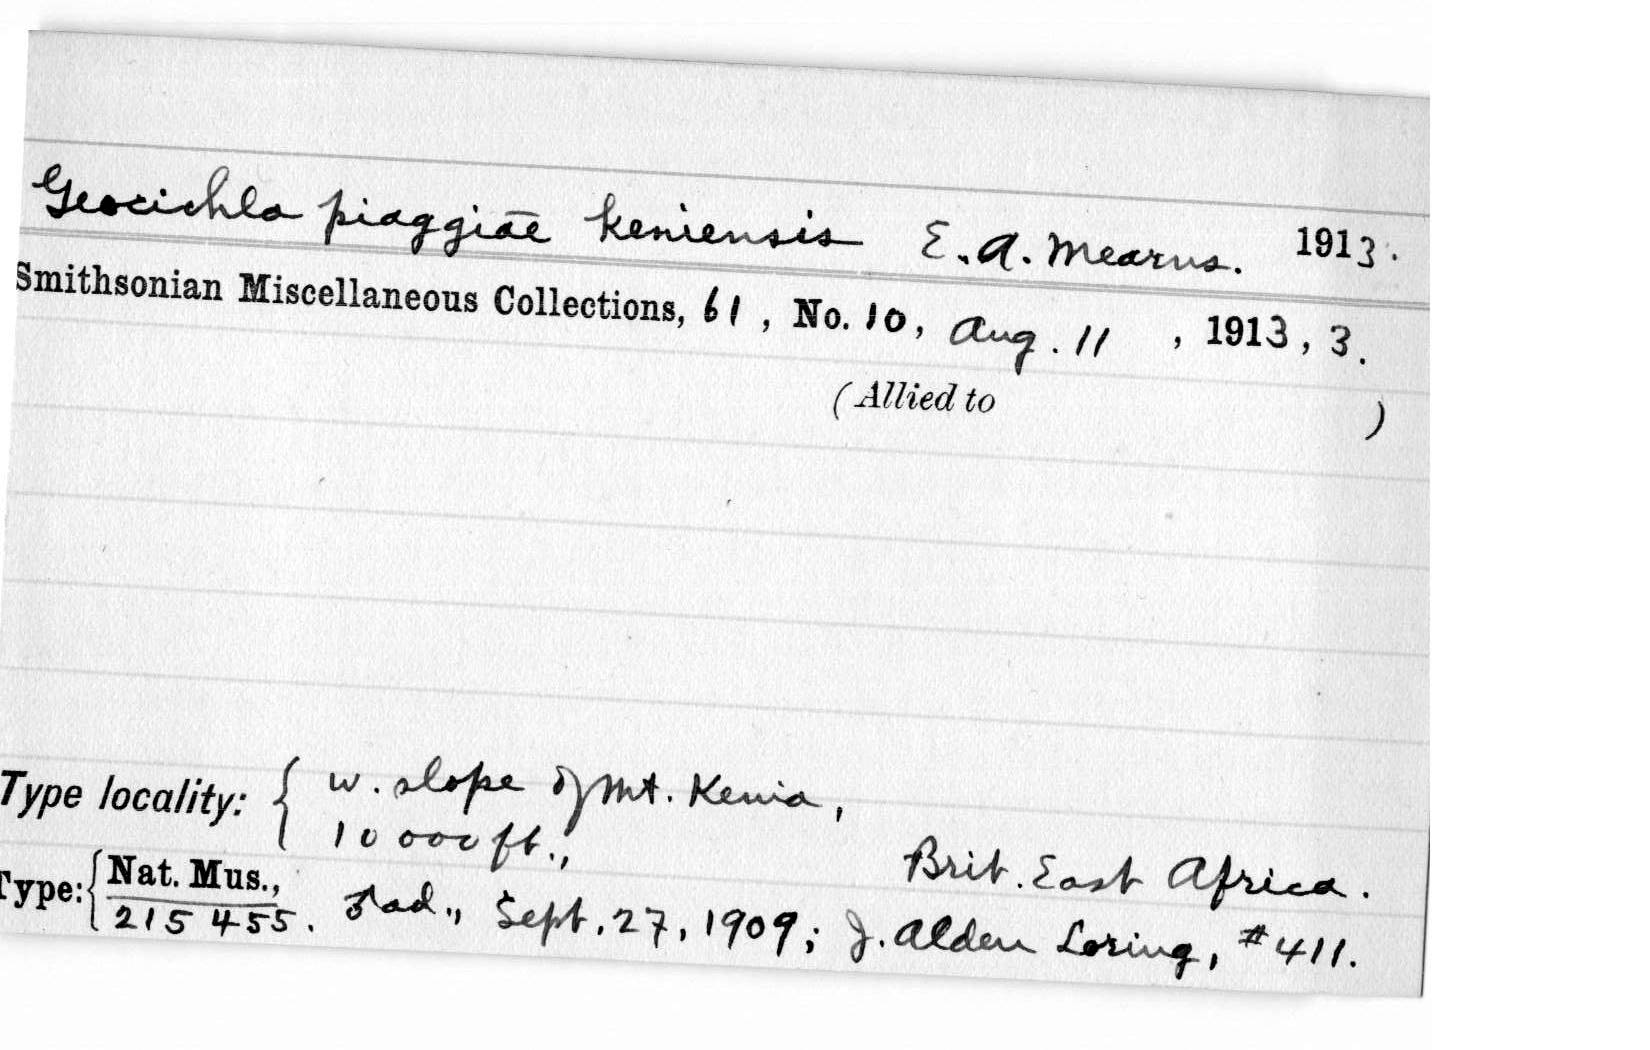 Geocichla piaggiae keniensis E.A. Mearns. 1913.
Smithsonian Miscellaneous Collections, 61, No. 10, Aug. 11, 1913, 3.
(Allied to )
Type locality: { W. slope of Mt. Kenia,
10 000 ft.,
Brit. East Africa.
Type: { Nat. Mus.,
215 455. ♂ ad., Sept. 27, 1909; J. Alden Loring, #411.